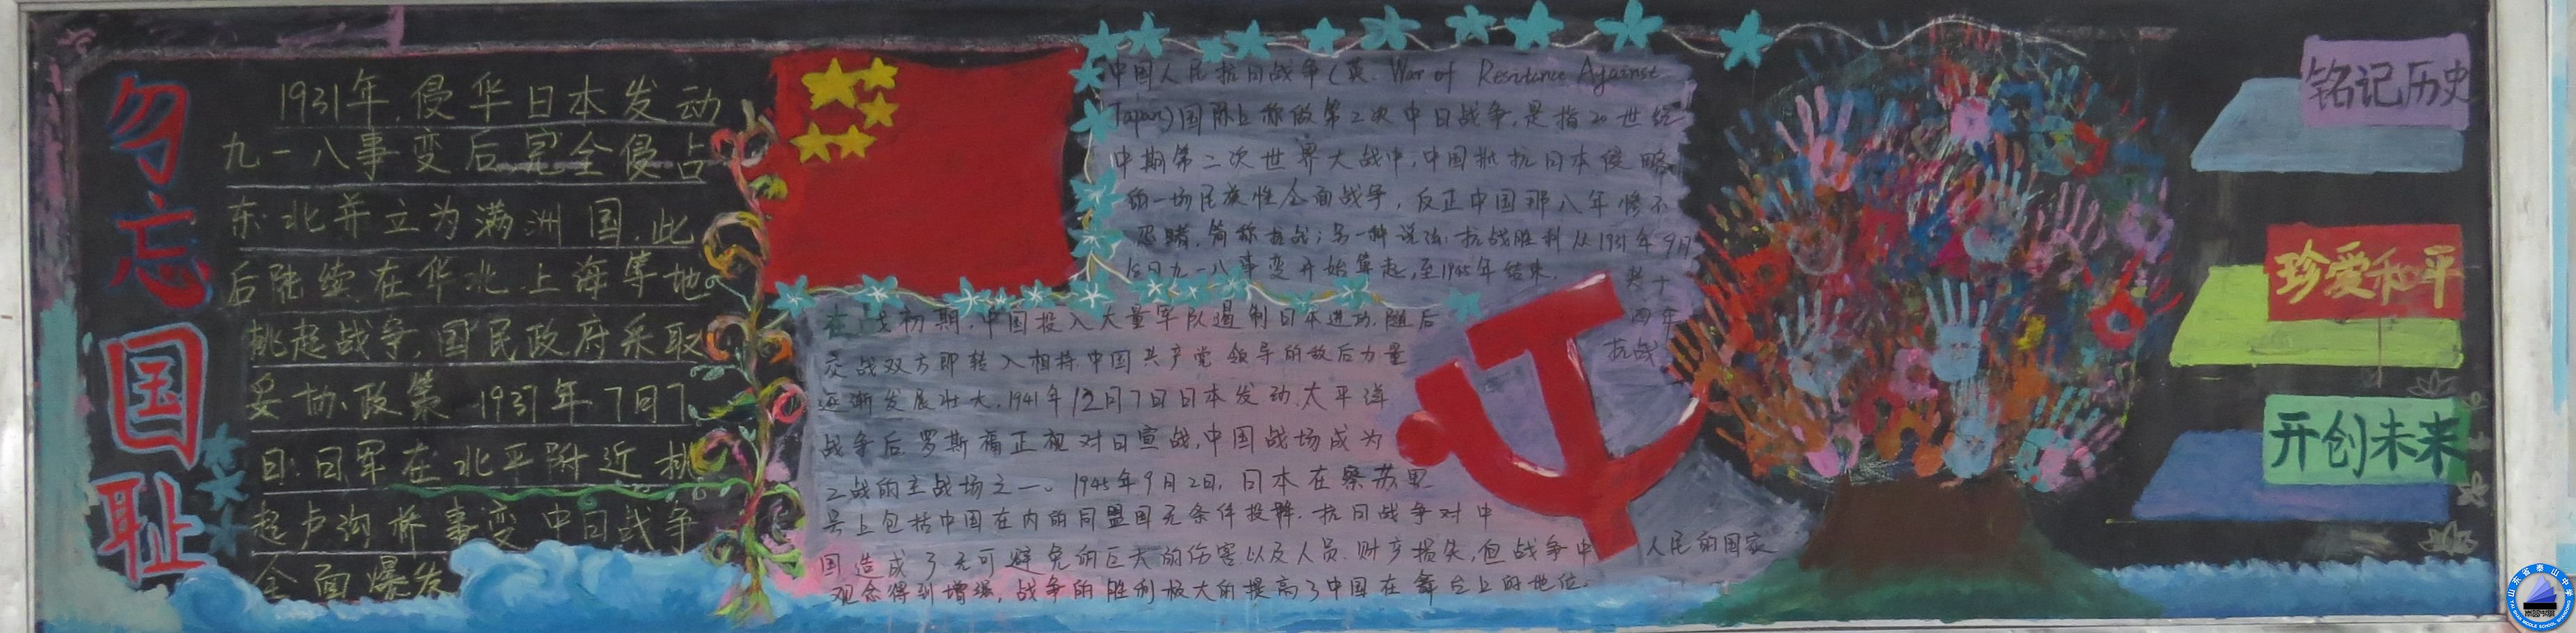 勿忘国耻
1931年,侵华日本发动
九一八事变后完全侵占
东北并立为满洲国,此
后陆续在华北、上海等地
挑起战争,国民政府采取
妥协政策 1937年7月7
日,日军在北平附近挑
起卢沟桥事变中日战争
全面爆发
中国人民抗日战争(英.War of Resistance Against
Japan)国际上称做第2次中日战争,是指20世纪
中期第二次世界大战中,中国抵抗日本侵略
的一场民族性全面战争,反正中国那八年惨不
忍睹,简称抗战;另一种说法:抗战胜利从1931年9月
18日九一八事变开始算起,至1945年结束. 共十
四年
抗战
在 战初期,中国投入大量军队遏制日本进攻,随后
交战双方即转入相持中国共产党领导的敌后力量
逐渐发展壮大,1941年12月7日日本发动太平洋
战争后,罗斯福正视对日宣战,中国战场成为
二战的主战场之一。1945年9月2日,日本在密苏里
号上包括中国在内的同盟国无条件投降.抗日战争对中
国造成了无可避免的巨大的伤害以及人员.财产损失,但战争中 人民的国家
观念得到增强,战争的胜利极大的提高了中国在舞台上的地位.
铭记历史
珍爱和平
开创未来
山东省泰山中学